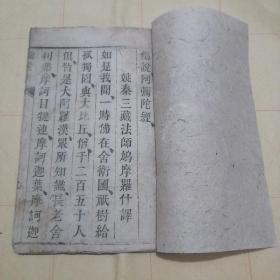 佛說阿彌陀經
姚秦三藏法師鳩摩羅什譯
如是我聞一時佛在舍衛國祇樹給
孤獨園與大比丘僧千二百五十人
俱皆是大阿羅漢眾所知識長老舍
利弗摩訶目犍連摩訶迦葉摩訶迦